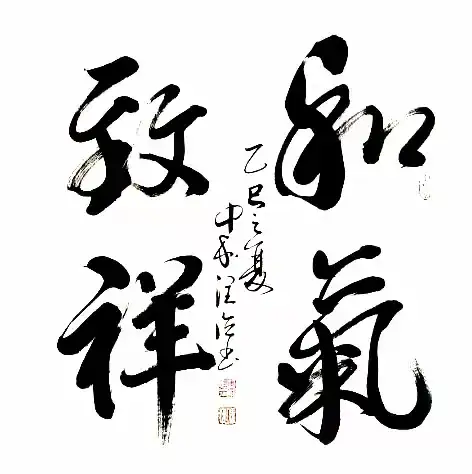 和氣
致祥
乙巳之夏
中